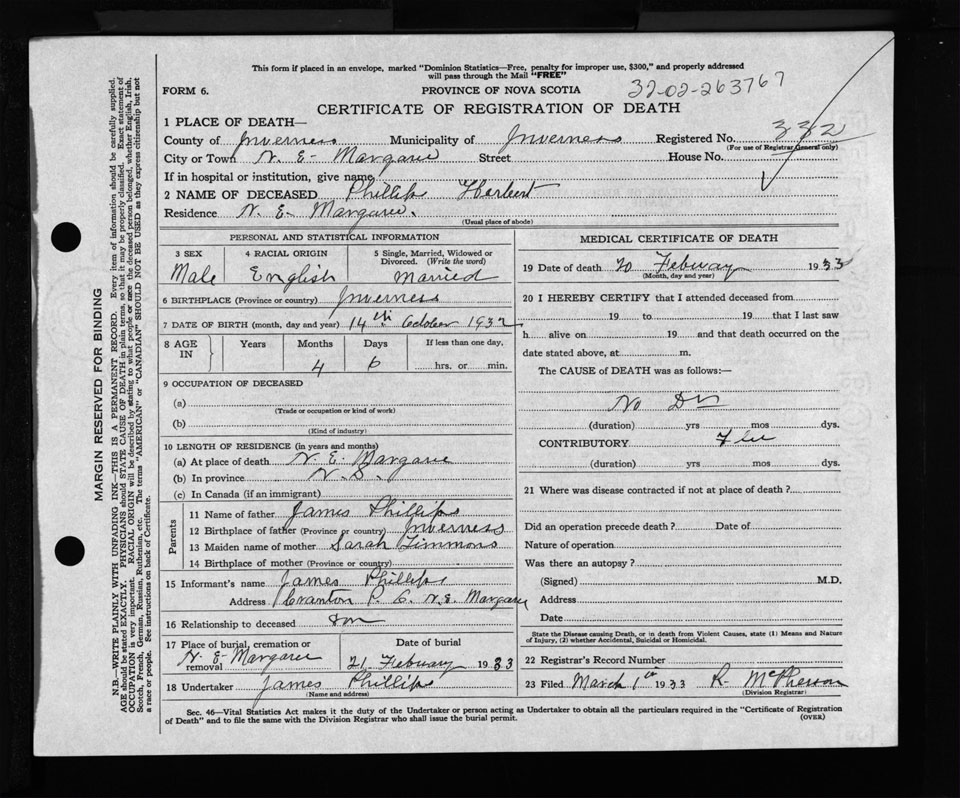 This form if placed in an envelope, marked "Dominion Statistics—Free, penalty for improper use, $300," and properly addressed
will pass through the Mail "FREE"
FORM 6.
PROVINCE OF NOVA SCOTIA
32-02-263767
CERTIFICATE OF REGISTRATION OF DEATH
1 PLACE OF DEATH—
County of Inverness Municipality of Inverness Registered No. 332
(For use of Registrar General only)
City or Town N. E. Margaree Street House No.
If in hospital or institution, give name
2 NAME OF DECEASED Phillips Herbert
Residence N. E. Margaree.
(Usual place of abode)
PERSONAL AND STATISTICAL INFORMATION
3 SEX 4 RACIAL ORIGIN 5 Single, Married, Widowed or
Divorced. (Write the word)
Male English Married
6 BIRTHPLACE (Province or country) Inverness
7 DATE OF BIRTH (month, day and year) 14th October 1932
8 AGE IN Years Months Days If less than one day,
4 6 hrs. or min.
9 OCCUPATION OF DECEASED
(a)
(Trade or occupation or kind of work)
(b)
(Kind of industry)
10 LENGTH OF RESIDENCE (in years and months)
(a) At place of death N. E. Margaree
(b) In province N. S.
(c) In Canada (if an immigrant)
Parents
11 Name of father James Phillips
12 Birthplace of father (Province or country) Inverness
13 Maiden name of mother Sarah Timmons
14 Birthplace of mother (Province or country)
15 Informant's name James Phillips
Address Cranton P. O. N. E. Margaree
16 Relationship to deceased son
17 Place of burial, cremation or removal Date of burial
N. E. Margaree 21 Febuary 1933
18 Undertaker James Phillips
(Name and address)
MEDICAL CERTIFICATE OF DEATH
19 Date of death 20 Febuary 1933
(Month, day and year)
20 I HEREBY CERTIFY that I attended deceased from
19 to 19 that I last saw
h alive on 19 and that death occurred on the
date stated above, at m.
The CAUSE of DEATH was as follows:—
No Dr
(duration) yrs mos dys.
CONTRIBUTORY Flu
(duration) yrs mos dys.
21 Where was disease contracted if not at place of death?
Did an operation precede death? Date of
Nature of operation
Was there an autopsy?
(Signed) M.D.
Address
Date
State the Disease causing Death, or in death from Violent Causes, state (1) Means and Nature
of Injury, (2) whether Accidental, Suicidal or Homicidal.
22 Registrar's Record Number
23 Filed March 1st 1933 R. McPherson
(Division Registrar)
Sec. 46—Vital Statistics Act makes it the duty of the Undertaker or person acting as Undertaker to obtain all the particulars required in the "Certificate of Registration
of Death" and to file the same with the Division Registrar who shall issue the burial permit.
(OVER)
MARGIN RESERVED FOR BINDING
N.B.—WRITE PLAINLY WITH UNFADING INK—THIS IS A PERMANENT RECORD. Every item of information should be carefully supplied.
AGE should be stated EXACTLY. PHYSICIANS should STATE CAUSE OF DEATH in plain terms, so that it may be properly classified. Exact statement of
OCCUPATION is very important. RACIAL ORIGIN will be described by stating to what people or race the deceased person belonged, whether English, Irish,
Scotch, French, German, Russian, Ruthenian, etc. The terms "AMERICAN" or "CANADIAN" SHOULD NOT BE USED as they express citizenship but not
a race or people. See instructions on back of Certificate.